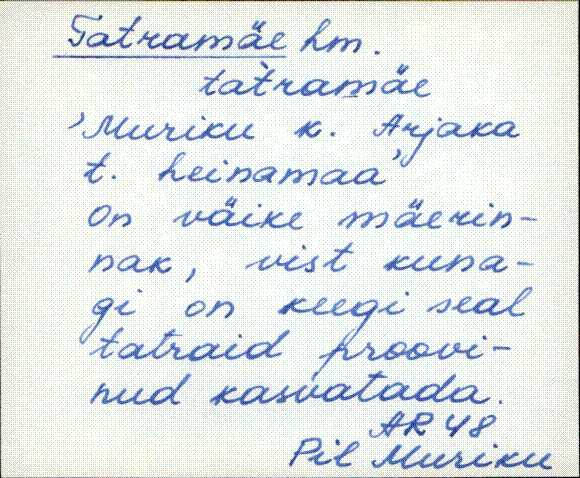 Tatramäe hm.
tat̀ramäe
'Muriku k. Arjaka
t. heinamaa'
On väike mäerin-
nak, vist kuna-
gi on keegi seal
tatraid proovi-
nud kasvatada.
AR 48
Pil Muriku